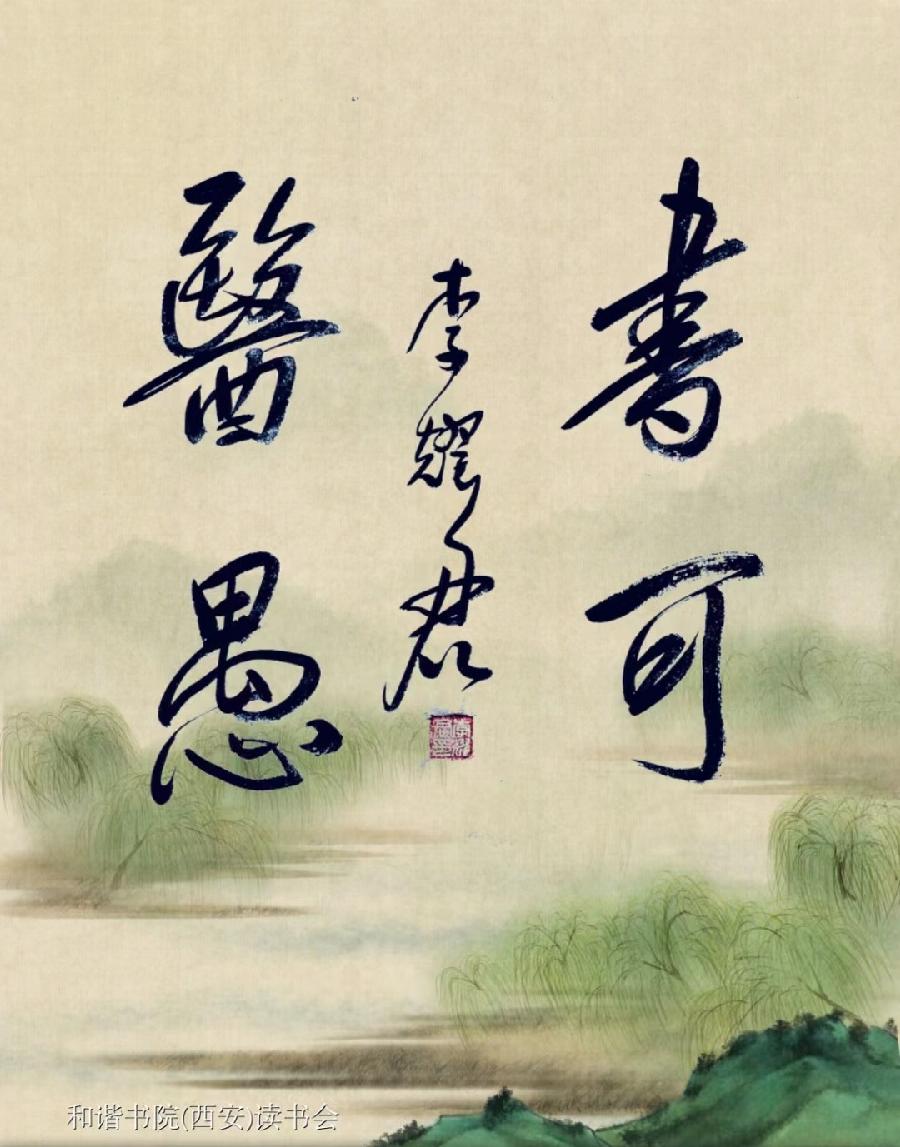 書可
醫愚
李耀君
和谐书院(西安)读书会